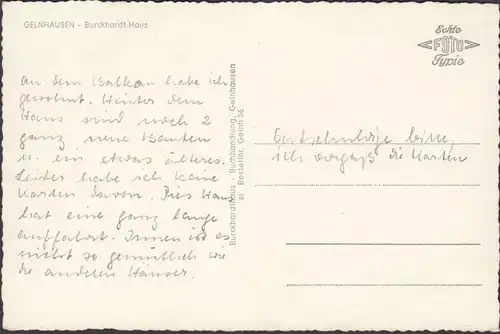 GELNHAUSEN - Burckhardt-Haus
Echte
FOTO
Typie
An dem Balkon habe ich
gewohnt. Hinter dem
Haus sind noch 2
ganz neue Bauten
u. ein etwas älteres.
Leider habe ich keine
Karten davon. Dies Haus
hat eine ganz lange
auffahrt. Innen ist es
nicht so gemütlich wie
die anderen Häuser.
Burckhardthaus - Buchhandlung, Gelnhausen
st Bestellnr. Gelnh 56
Entschuldige bitte,
ich vergaß die Karten